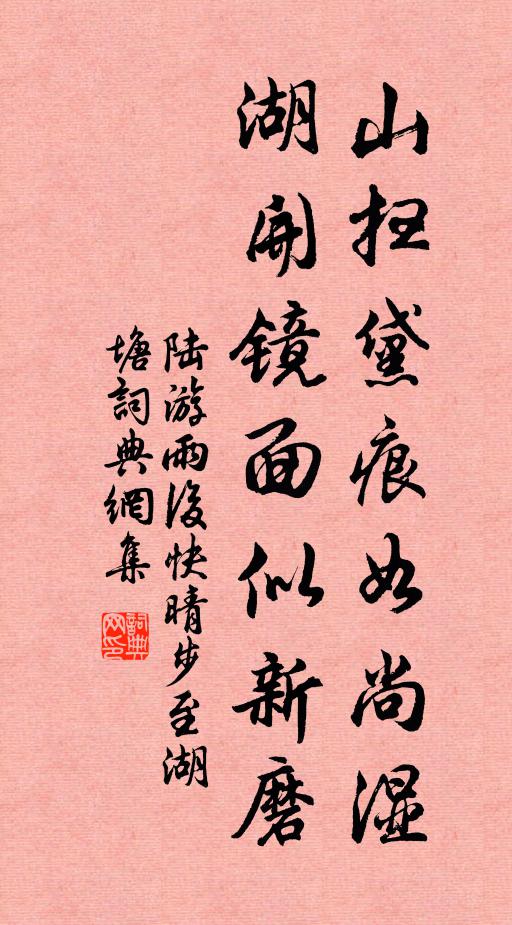 山扫黛痕如尚湿
湖開镜面似新磨
陆游雨後快晴步至湖
塘詞典網集
詞典网印